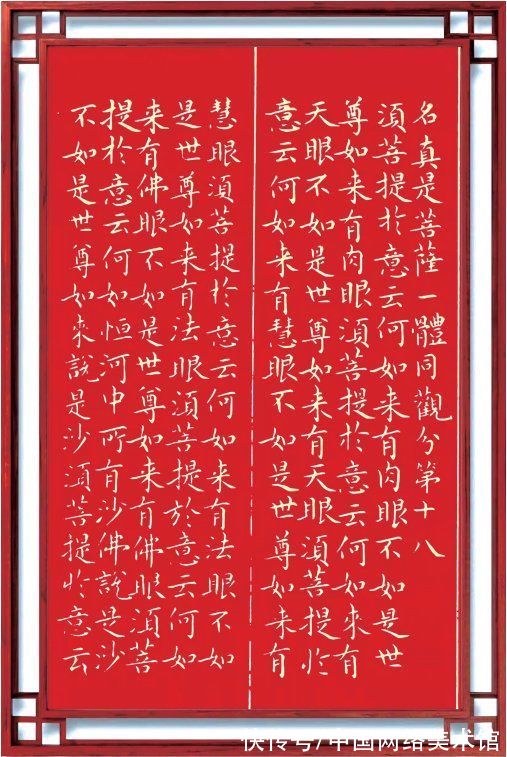 名真是菩薩一體同觀分第十八
須菩提於意云何如来有肉眼不如是世
尊如来有肉眼須菩提於意云何如來有
天眼不如是世尊如来有天眼須菩提於
意云何如来有慧眼不如是世尊如来有
慧眼須菩提於意云何如来有法眼不如
是世尊如来有法眼須菩提於意云何如
来有佛眼不如是世尊如来有佛眼須菩
提於意云何如恒河中所有沙佛說是沙
不如是世尊如來說是沙須菩提於意云
快传号/中国网络美术馆